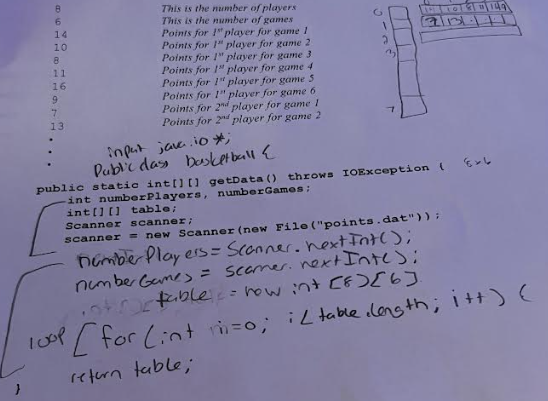 8 This is the number of players
6 This is the number of games
14 Points for 1st player for game 1
10 Points for 1st player for game 2
8 Points for 1st player for game 3
11 Points for 1st player for game 4
16 Points for 1st player for game 5
9 Points for 1st player for game 6
7 Points for 2nd player for game 1
13 Points for 2nd player for game 2
.
.
.
input java.io *;
Public class basketball {
public static int[][] getData() throws IOException {
int numberPlayers, numberGames;
int[][] table;
Scanner scanner;
scanner = new Scanner(new File("points.dat"));
numberPlayers = Scanner.nextInt();
numberGames = scanner.nextInt();
table = new int [8][6]
loop [ for (int i=0; i< table.length; i++) {
return table;
}
0
1
2
3
7